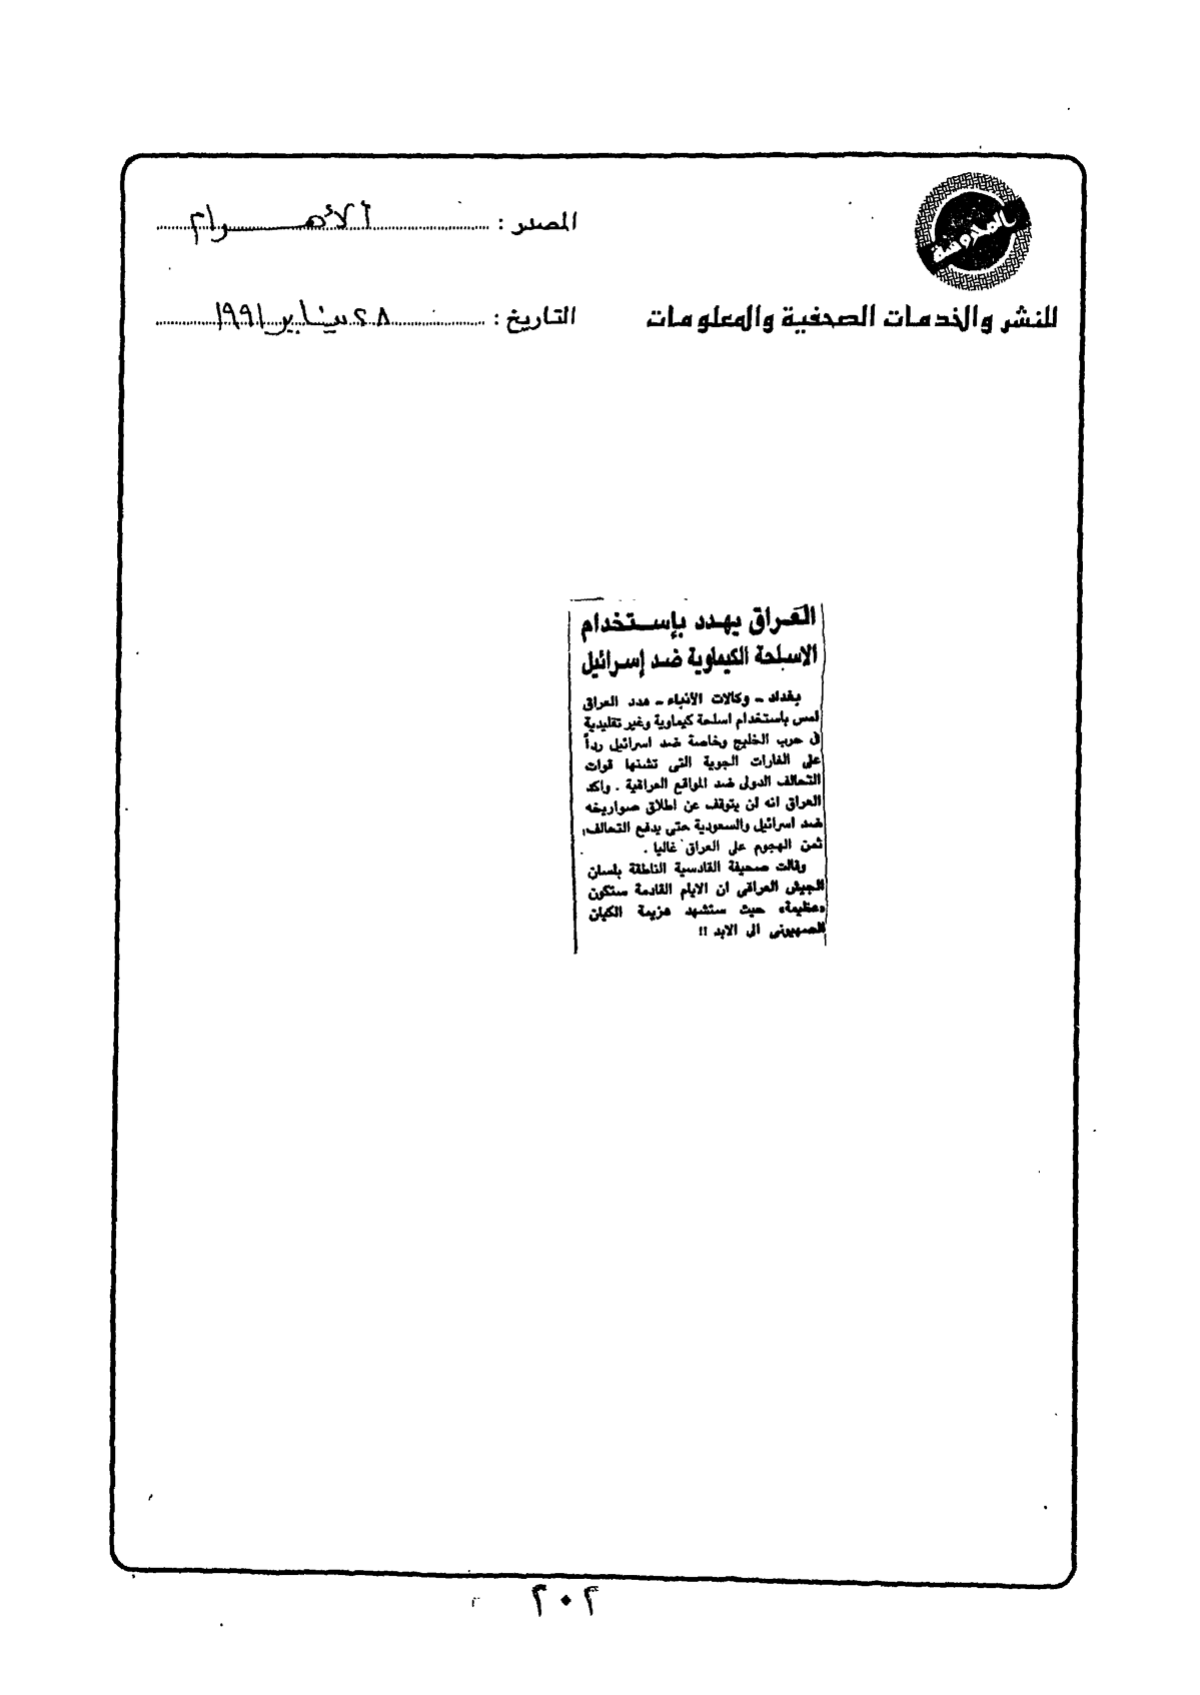 المدروسة
للنشر والخدمات الصحفية والمعلومات
المصدر : الأهـــرام
التاريخ : ٢٨ يناير ١٩٩١
العـراق يهـدد بإستـخدام
الاسلحة الكيماوية ضد إسرائيل
بغداد - وكالات الأنباء - هدد العراق
امس باستخدام اسلحة كيماوية وغير تقليدية
فى حرب الخليج وخاصة ضد اسرائيل رداً
على الغارات الجوية التى تشنها قوات
التحالف الدولى ضد المواقع العراقية . واكد
العراق انه لن يتوقف عن اطلاق صواريخه
ضد اسرائيل والسعودية حتى يدفع التحالف
ثمن الهجوم على العراق غاليا .
وقالت صحيفة القادسية الناطقة بلسان
الجيش العراقى ان الايام القادمة ستكون
«عظيمة» حيث ستشهد هزيمة الكيان
الصهيونى الى الابد !!
٢٠٢